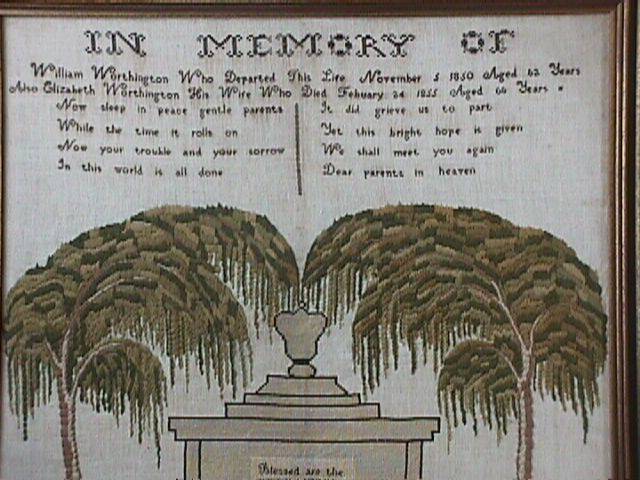 IN MEMORY OF
William Worthington Who Departed This Life November 5 1850 Aged 62 Years
Also Elizabeth Worthington His Wife Who Died Febuary 24 1855 Aged 66 Years
Now sleep in peace gentle parents
While the time it rolls on
Now your trouble and your sorrow
In this world is all done
It did grieve us to part
Yet this bright hope is given
We shall meet you again
Dear parents in heaven
Blessed are the